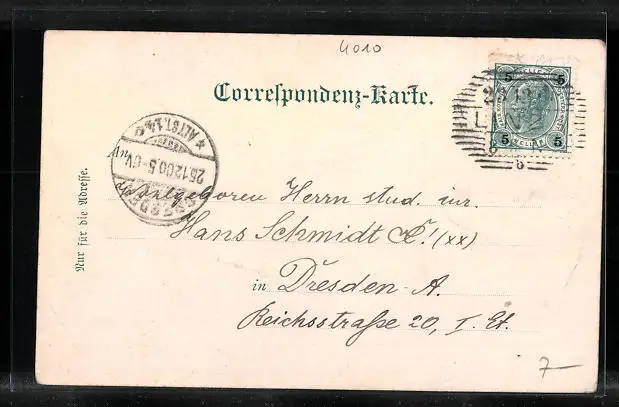 4010
Correspondenz-Karte.
5 5
HELLER
5 5
LINZ
8
ALTST. 14
25.12.00.5-6V.
DRESDEN
Nur für die Adresse.
Wohlgeboren Herrn stud. iur.
Hans Schmidt (xx)
in Dresden-A.
Reichsstraße 20, I. Et.
7